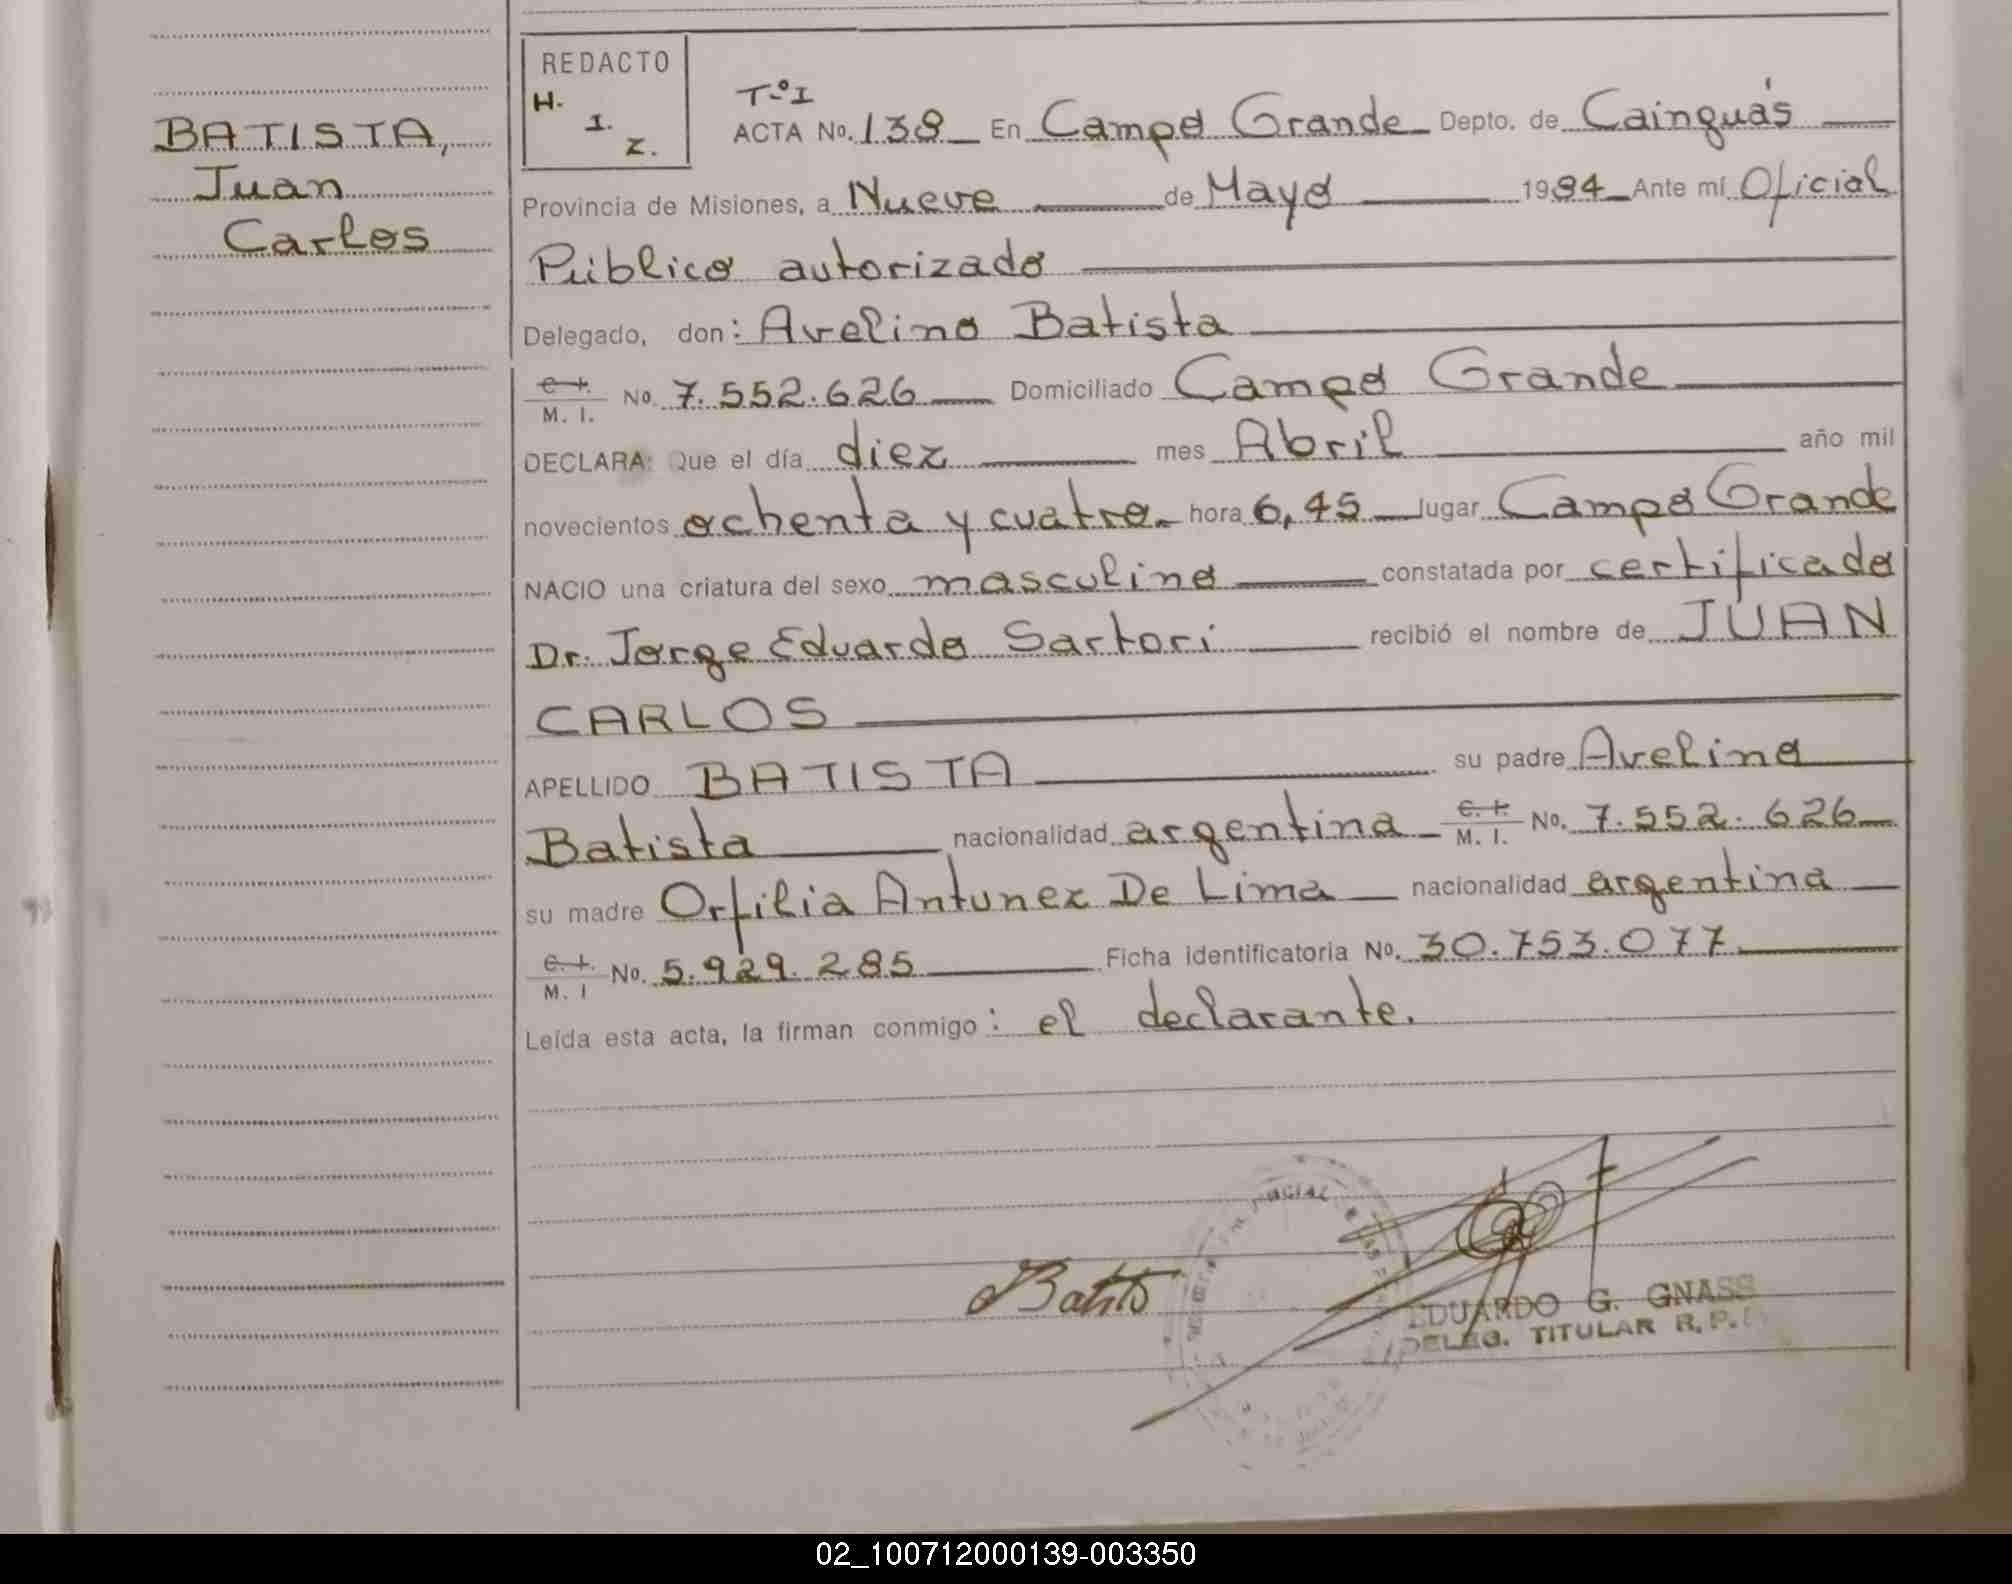 BATISTA,
Juan
Carlos
REDACTO
H.
I.
Z.
T-º I
ACTA No. 138 En Campo Grande Depto. de Cainguás
Provincia de Misiones, a Nueve de Mayo 1984 Ante mí Oficial
Público autorizado
Delegado, don: Avelino Batista
C. I. M. I. No. 7.552.626 Domiciliado Campo Grande
DECLARA: Que el día diez mes Abril año mil
novecientos ochenta y cuatro. hora 6,45 lugar Campo Grande
NACIO una criatura del sexo masculino constatada por certificado
Dr. Jorge Eduardo Sartori recibió el nombre de JUAN
CARLOS
APELLIDO BATISTA su padre Avelino
Batista nacionalidad argentina C. I. M. I. No. 7.552.626
su madre Orfilia Antunez De Lima nacionalidad argentina
C. I. M. I No. 5.929.285 Ficha identificatoria No. 30.753.077
Leída esta acta, la firman conmigo: el declarante.
EDUARDO G. GNASS
DELEG. TITULAR R. P.
02_100712000139-003350